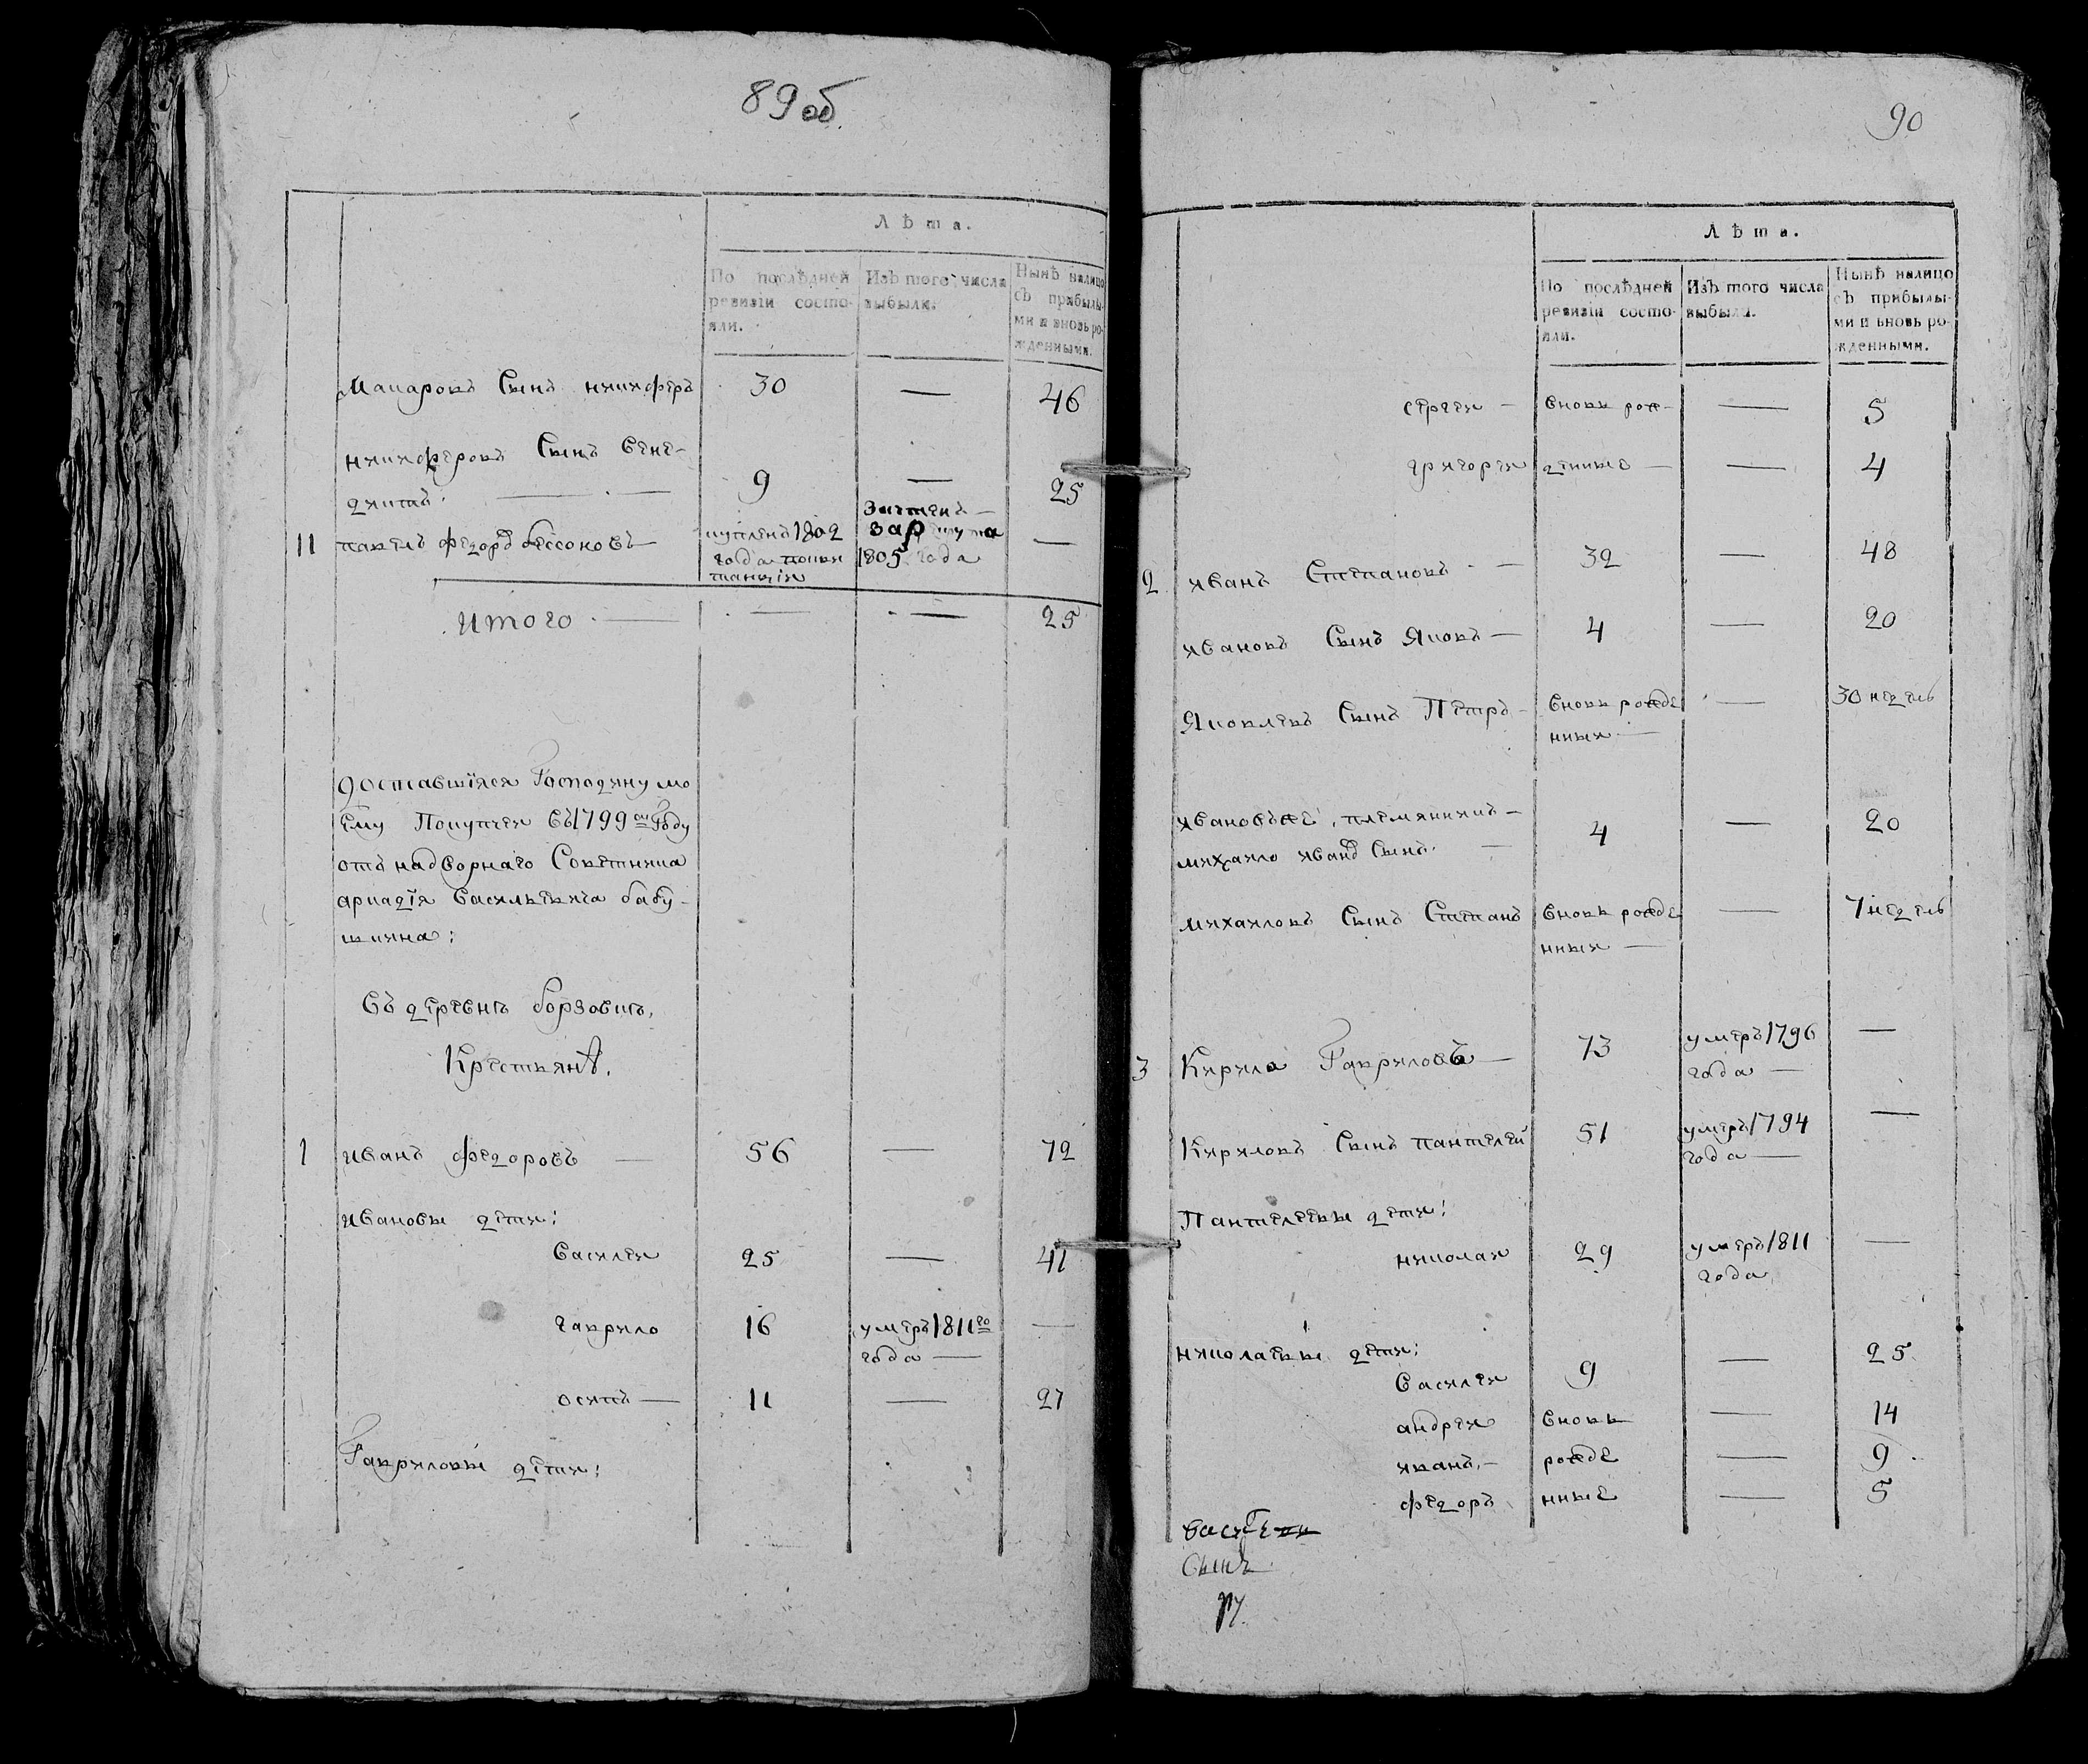 89 об.
Лѣта.
По послѣдней ревизіи состо-
яли.
Изъ того числа
выбыли.
Нынѣ налицо
съ прибылы-
ми и вновь ро-
жденными.
Макаровъ Сынъ никифоръ 30 — 46
никифоровъ Сынъ Бене-
диктъ. — 9 — 25
11 павелъ федоровъ бессоновъ — купленъ 1802 года зачтенъ за рекрута 1805 года —
Итого — — — 25
доставшїяся Господину мо
ему Покупкеи въ 1799 ом Году
отъ надворнаго Советника
аркадїя Васильевича бабу-
шкина:
Въ деревнѣ борзовкѣ,
Крестьянъ.
1 иванъ федоровъ — 56 — 72
ивановы дети:
Василеи 25 — 41
гаврило 16 умеръ 1811 го —
года —
осипъ — 11 — 27
Гавриловы дети:
90
Лѣта.
По послѣдней
ревизіи состо-
яли.
Изъ того числа
выбыли.
Нынѣ налицо
съ прибылы-
ми и вновь ро-
жденными.
сергеи — вновь рож- — 5
григореи денные — — 4
2 иванъ Степановъ — 32 — 48
ивановъ Сынъ Яковъ — 4 — 20
Яковлевъ Сынъ Петръ — вновь рожде — 30 недель
нныи —
ивановъ же племянникъ —
михаило иванов Сынъ — 4 — 20
михаиловъ Сынъ Степанъ вновь рожде — 7 недель
нныи —
3 Кирила Гавриловъ — 73 умеръ 1796 —
года —
Кириловъ Сынъ пантелеи 51 умеръ 1794 —
года —
Пантелеевы дети:
николаи 29 умеръ 1811 —
года
николаевы дети:
Василеи 9 — 25
андреи вновь — 14
иванъ — рожде — 9
федоръ нные — 5
Сынъ